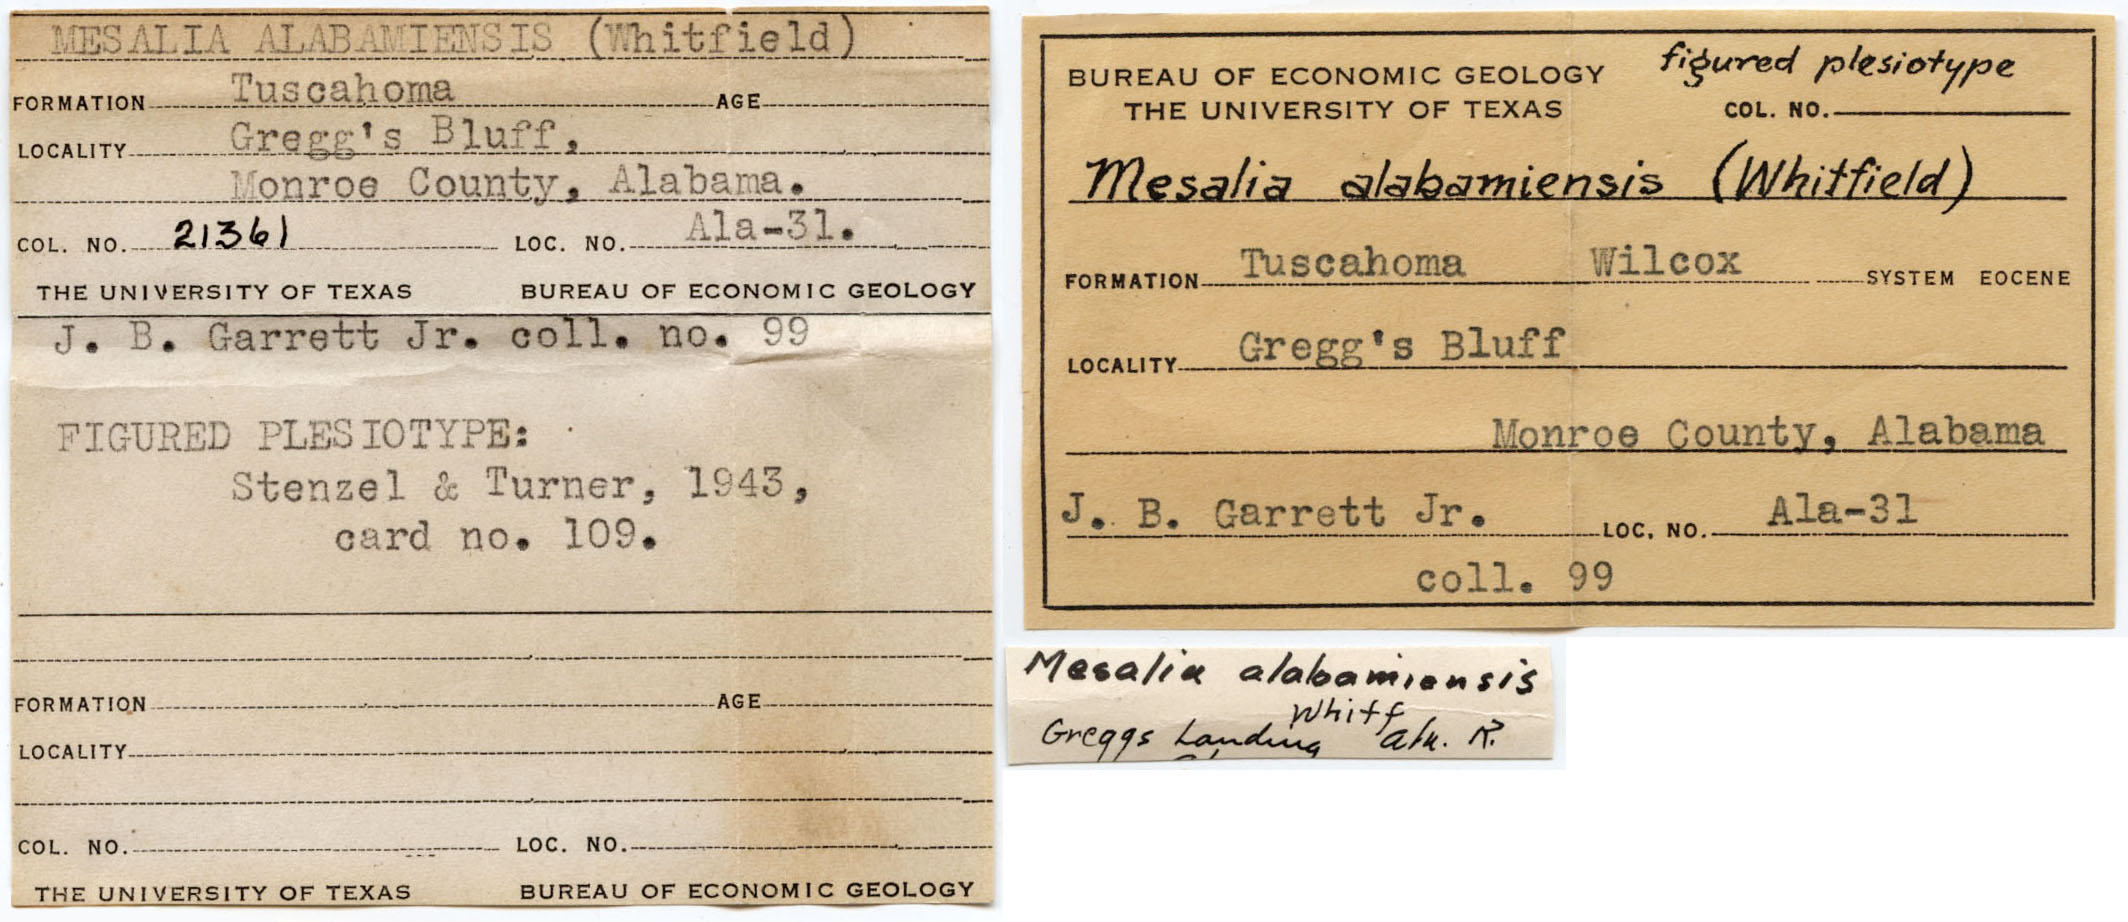 MESALIA ALABAMIENSIS (Whitfield)
FORMATION Tuscahoma AGE
LOCALITY Gregg's Bluff,
Monroe County, Alabama.
COL. NO. 21361 LOC. NO. Ala-31.
THE UNIVERSITY OF TEXAS BUREAU OF ECONOMIC GEOLOGY
J. B. Garrett Jr. coll. no. 99
FIGURED PLESIOTYPE:
Stenzel & Turner, 1943,
card no. 109.
FORMATION AGE
LOCALITY
COL. NO. LOC. NO.
THE UNIVERSITY OF TEXAS BUREAU OF ECONOMIC GEOLOGY
figured plesiotype
BUREAU OF ECONOMIC GEOLOGY
THE UNIVERSITY OF TEXAS COL. NO.
Mesalia alabamiensis (Whitfield)
FORMATION Tuscahoma Wilcox SYSTEM EOCENE
LOCALITY Gregg's Bluff
Monroe County, Alabama
J. B. Garrett Jr. LOC. NO. Ala-31
coll. 99
Mesalia alabamiensis
Whitf
Greggs Landing Ala. R.